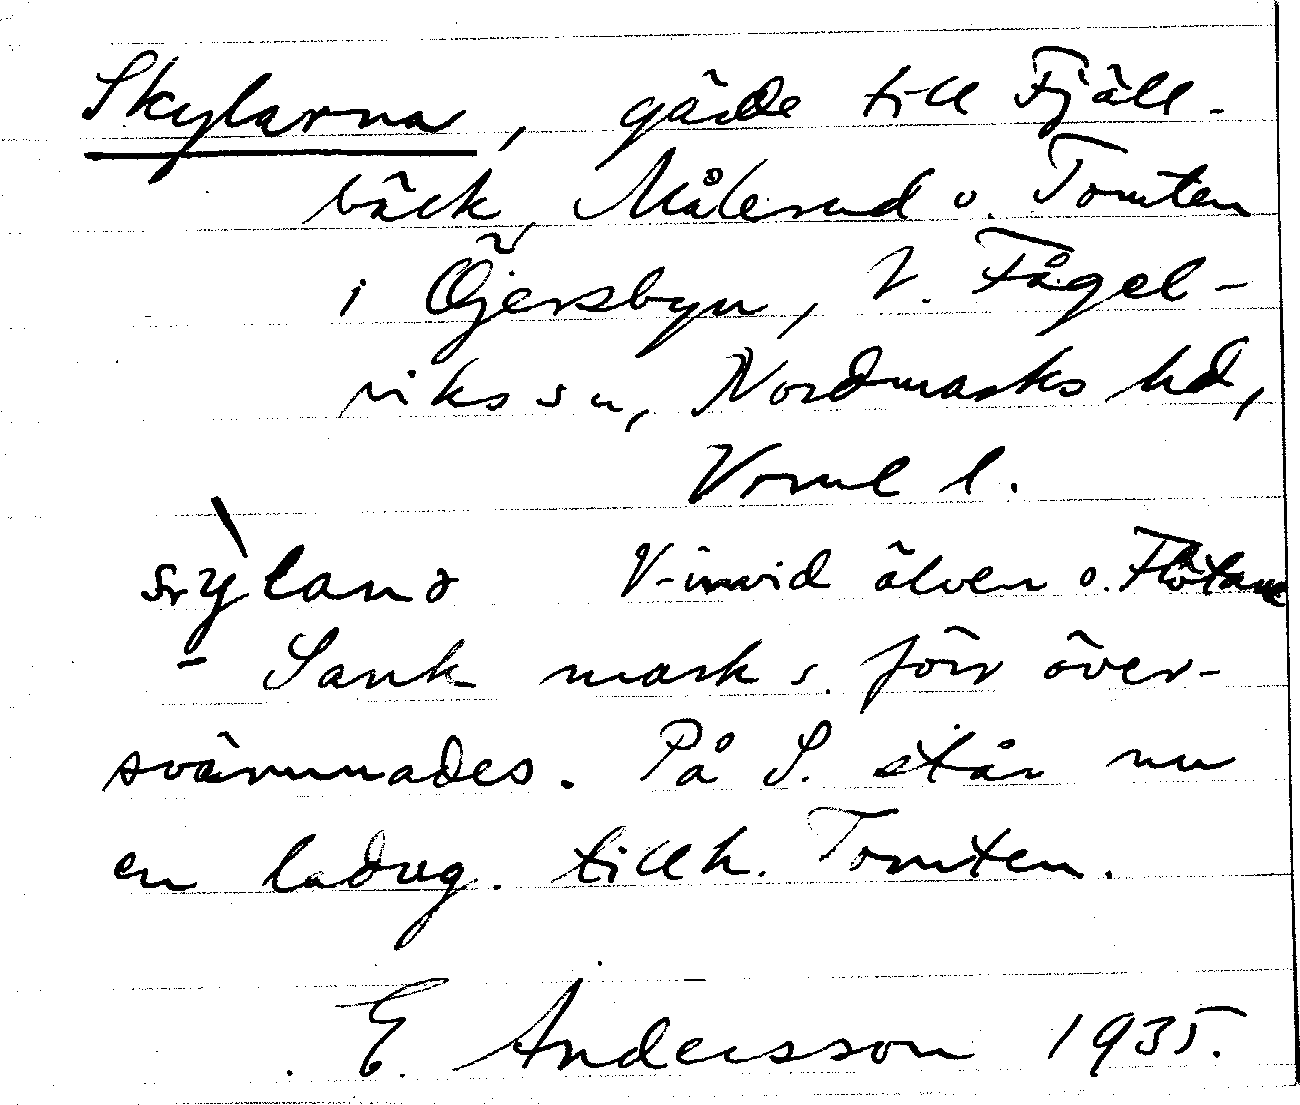 Skylarna, gärde till Fjäll-
bäck, Målerud o. Tomten
i Öjersbyn, V. Fågel-
viks sn, Nordmarks hd,
Vrml l.
V- invid älven o. Flötarne
- Sank mark s. förr över-
svämmades. På S. står nu
en ladug. tillh. Tomten.
E. Andersson 1935.